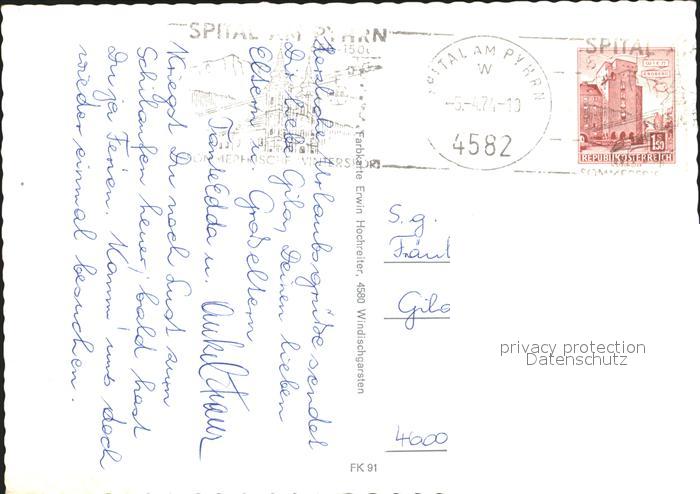 SPITAL AM PYHRN
SPITAL AM PYHRN
W
-5.-4.74-10
4582
SPITAL
WIEN
ERDBERG
1.50
REPUBLIK ÖSTERREICH
Herzliche Urlaubsgrüße sendet
Dir, liebe Gila, Deinen lieben
Eltern u. Großeltern
Tante Edda u. Onkel Hans
Kriegst Du noch Lust zum
Schilaufen heuer, bald hast
Du ja Ferien. Kannst uns doch
wieder einmal besuchen.
Farbkarte Erwin Hochreiter, 4580 Windischgarsten
S. g.
Fräul
Gila
4600
privacy protection
Datenschutz
FK 91